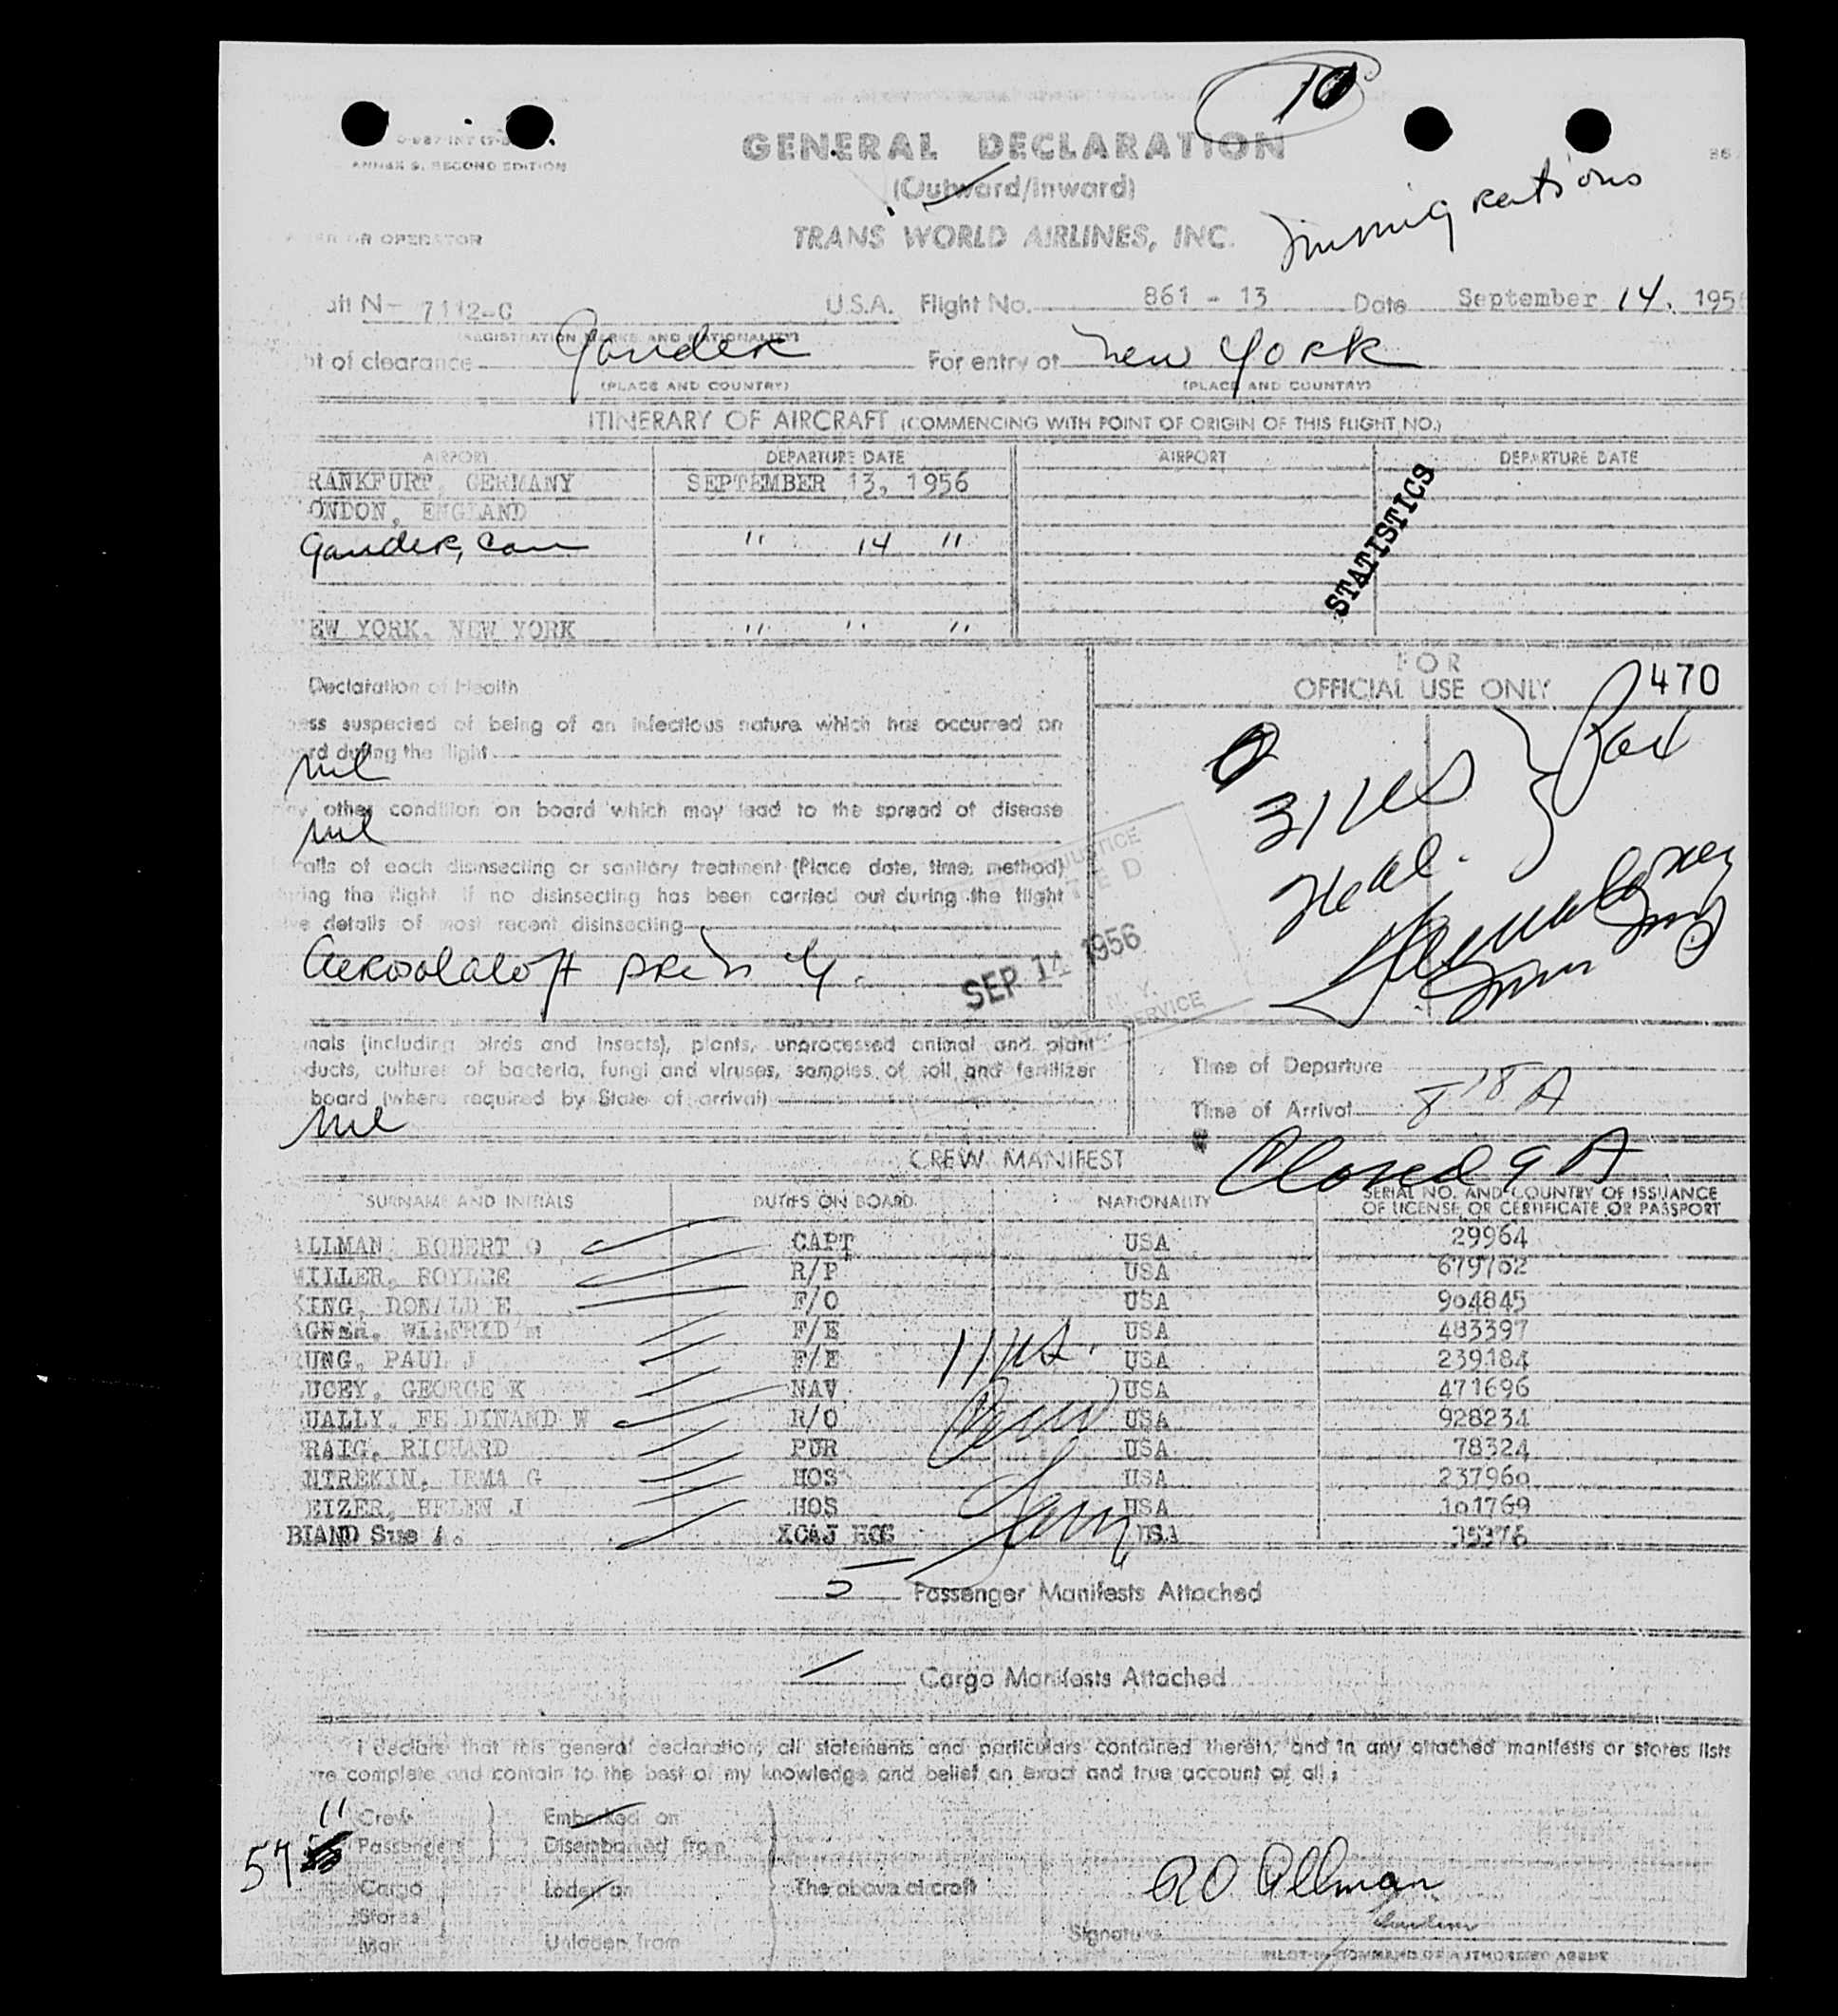 10
ANNEX 9, SECOND EDITION
GENERAL DECLARATION
(Outward/Inward)
OR OPERATOR
TRANS WORLD AIRLINES, INC.
Immigrations
N- 7112-C U.S.A. Flight No. 861 - 13 Date September 14, 195
(REGISTRATION MARKS AND NATIONALITY)
of clearance Gander For entry at New York
(PLACE AND COUNTRY) (PLACE AND COUNTRY)
ITINERARY OF AIRCRAFT (COMMENCING WITH POINT OF ORIGIN OF THIS FLIGHT NO.)
AIRPORT DEPARTURE DATE AIRPORT DEPARTURE DATE
RANKFURT, GERMANY SEPTEMBER 13, 1956
ONDON, ENGLAND
Gander, Can " 14 "
STATISTICS
EW YORK, NEW YORK " " "
FOR
OFFICIAL USE ONLY
470
Declaration of Health
ess suspected of being of an infectious nature which has occurred on
rd during the flight
nil
31 US
Pax
other condition on board which may lead to the spread of disease
nil
ails of each disinsecting or sanitary treatment (Place date, time, method)
ring the flight If no disinsecting has been carried out during the flight
ve details of most recent disinsecting
SEP 14 1956
N. Y.
SERVICE
mals (including birds and insects), plants, unprocessed animal and plant
ducts, cultures of bacteria, fungi and viruses, samples of soil and fertilizer
board (where required by State of arrival)
nil
Time of Departure
Time of Arrival 8 18 A
Closed 9 A
CREW MANIFEST
SURNAME AND INITIALS DUTIES ON BOARD NATIONALITY SERIAL NO. AND COUNTRY OF ISSUANCE OF LICENSE OR CERTIFICATE OR PASSPORT
ALLMAN, ROBERT O CAPT USA 29964
MILLER, ROYLCE R/P USA 679762
KING, DONALD E F/O USA 904845
AGNER, WILFRID M F/E USA 483397
RUNG, PAUL J F/E USA 239184
UCEY, GEORGE K NAV USA 471696
UALLY, FE DINAND W R/O USA 928234
RAIG, RICHARD PUR USA 78324
NTREKIN, IRMA G HOS USA 237960
EIZER, HELEN J HOS USA 101769
BIAND Sue A. HOS USA 35376
11 US.
Crew
5 Passenger Manifests Attached
Cargo Manifests Attached
I declare that this general declaration, all statements and particulars contained therein, and in any attached manifests or stores lists
re complete and contain to the best of my knowledge and belief an exact and true account of all;
11 Crew Embarked on
57 Passengers Disembarked from
Cargo Loden on The above aircraft
Stores
Mail Unladen from
RO Allman
Signature
PILOT-IN-COMMAND OR AUTHORIZED AGENT